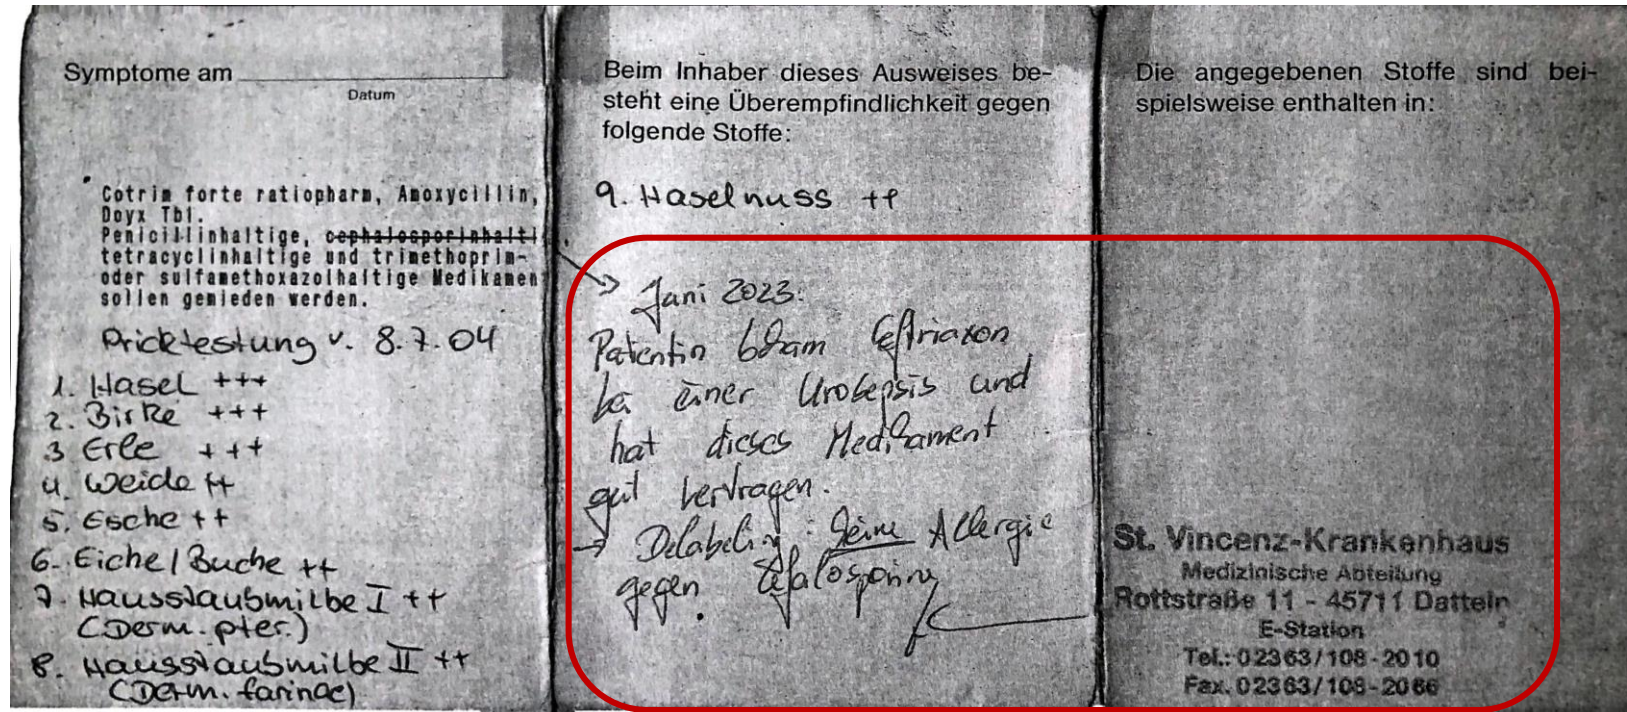 Symptome am
Datum
Cotrim forte ratiopharm, Amoxycillin,
Doyx Tbl.
Penicillinhaltige, cephalosporinhalti
tetracyclinhaltige und trimethoprim-
oder sulfamethoxazolhaltige Medikamen
sollen gemieden werden.
Pricktestung v. 8.7.04
1. Hasel +++
2. Birke +++
3 Erle +++
4. Weide ++
5. Esche ++
6. Eiche/Buche ++
7. Hausstaubmilbe I ++
(Derm. pter.)
8. Hausstaubmilbe II ++
(Derm. farinae)
Beim Inhaber dieses Ausweises be-
steht eine Überempfindlichkeit gegen
folgende Stoffe:
9. Haselnuss ++
→ Juni 2023:
Patientin bekam Ceftriaxon
bei einer Urosepsis und
hat dieses Medikament
gut vertragen.
→ Delabeling: keine Allergie
gegen Cefalosporine
Die angegebenen Stoffe sind bei-
spielsweise enthalten in:
St. Vincenz-Krankenhaus
Medizinische Abteilung
Rottstraße 11 - 45711 Datteln
E-Station
Tel.: 02363/108-2010
Fax. 02363/108-2066